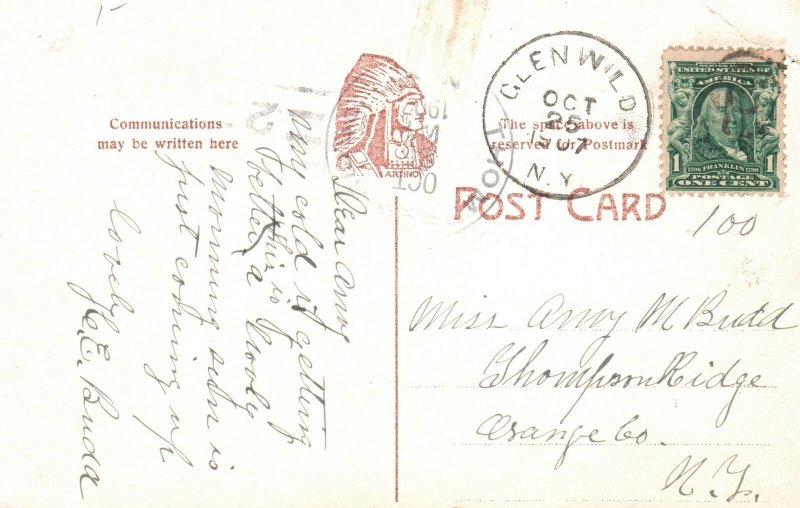 Communications
may be written here
ARTINO
GLEN WILD
OCT
25
1907
N.Y.
UNITED STATES OF
AMERICA
1
FRANKLIN
POSTAGE
ONE CENT
The space above is
reserved for Postmark
POST CARD
100
Dear Amy
My cold is getting
better this is
a lovely
morning sun is
just coming up
lovely
E. Budd
Miss Amy M Budd
Thompson Ridge
Orange Co.
N.Y.
OCT